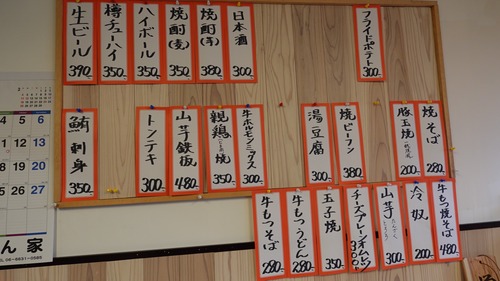 生ビール 390
樽チューハイ 350
ハイボール 350
焼酎(麦) 350
焼酎(芋) 380
日本酒 300
フライドポテト 300
鮪刺身 350
トンテキ 300
山芋鉄板 480
親鶏 焼 350
牛ホルモンミックス 300
湯豆腐 300
焼ビーフン 380
豚玉焼 200
焼そば 280
牛もつそば 280
牛もつうどん 280
玉子焼 350
チーズプレーンオムレツ 300
山芋 300
冷奴 200
牛もつ焼そば 480
4 5 6
11 12 13
18 19 20
25 26 27
ん家